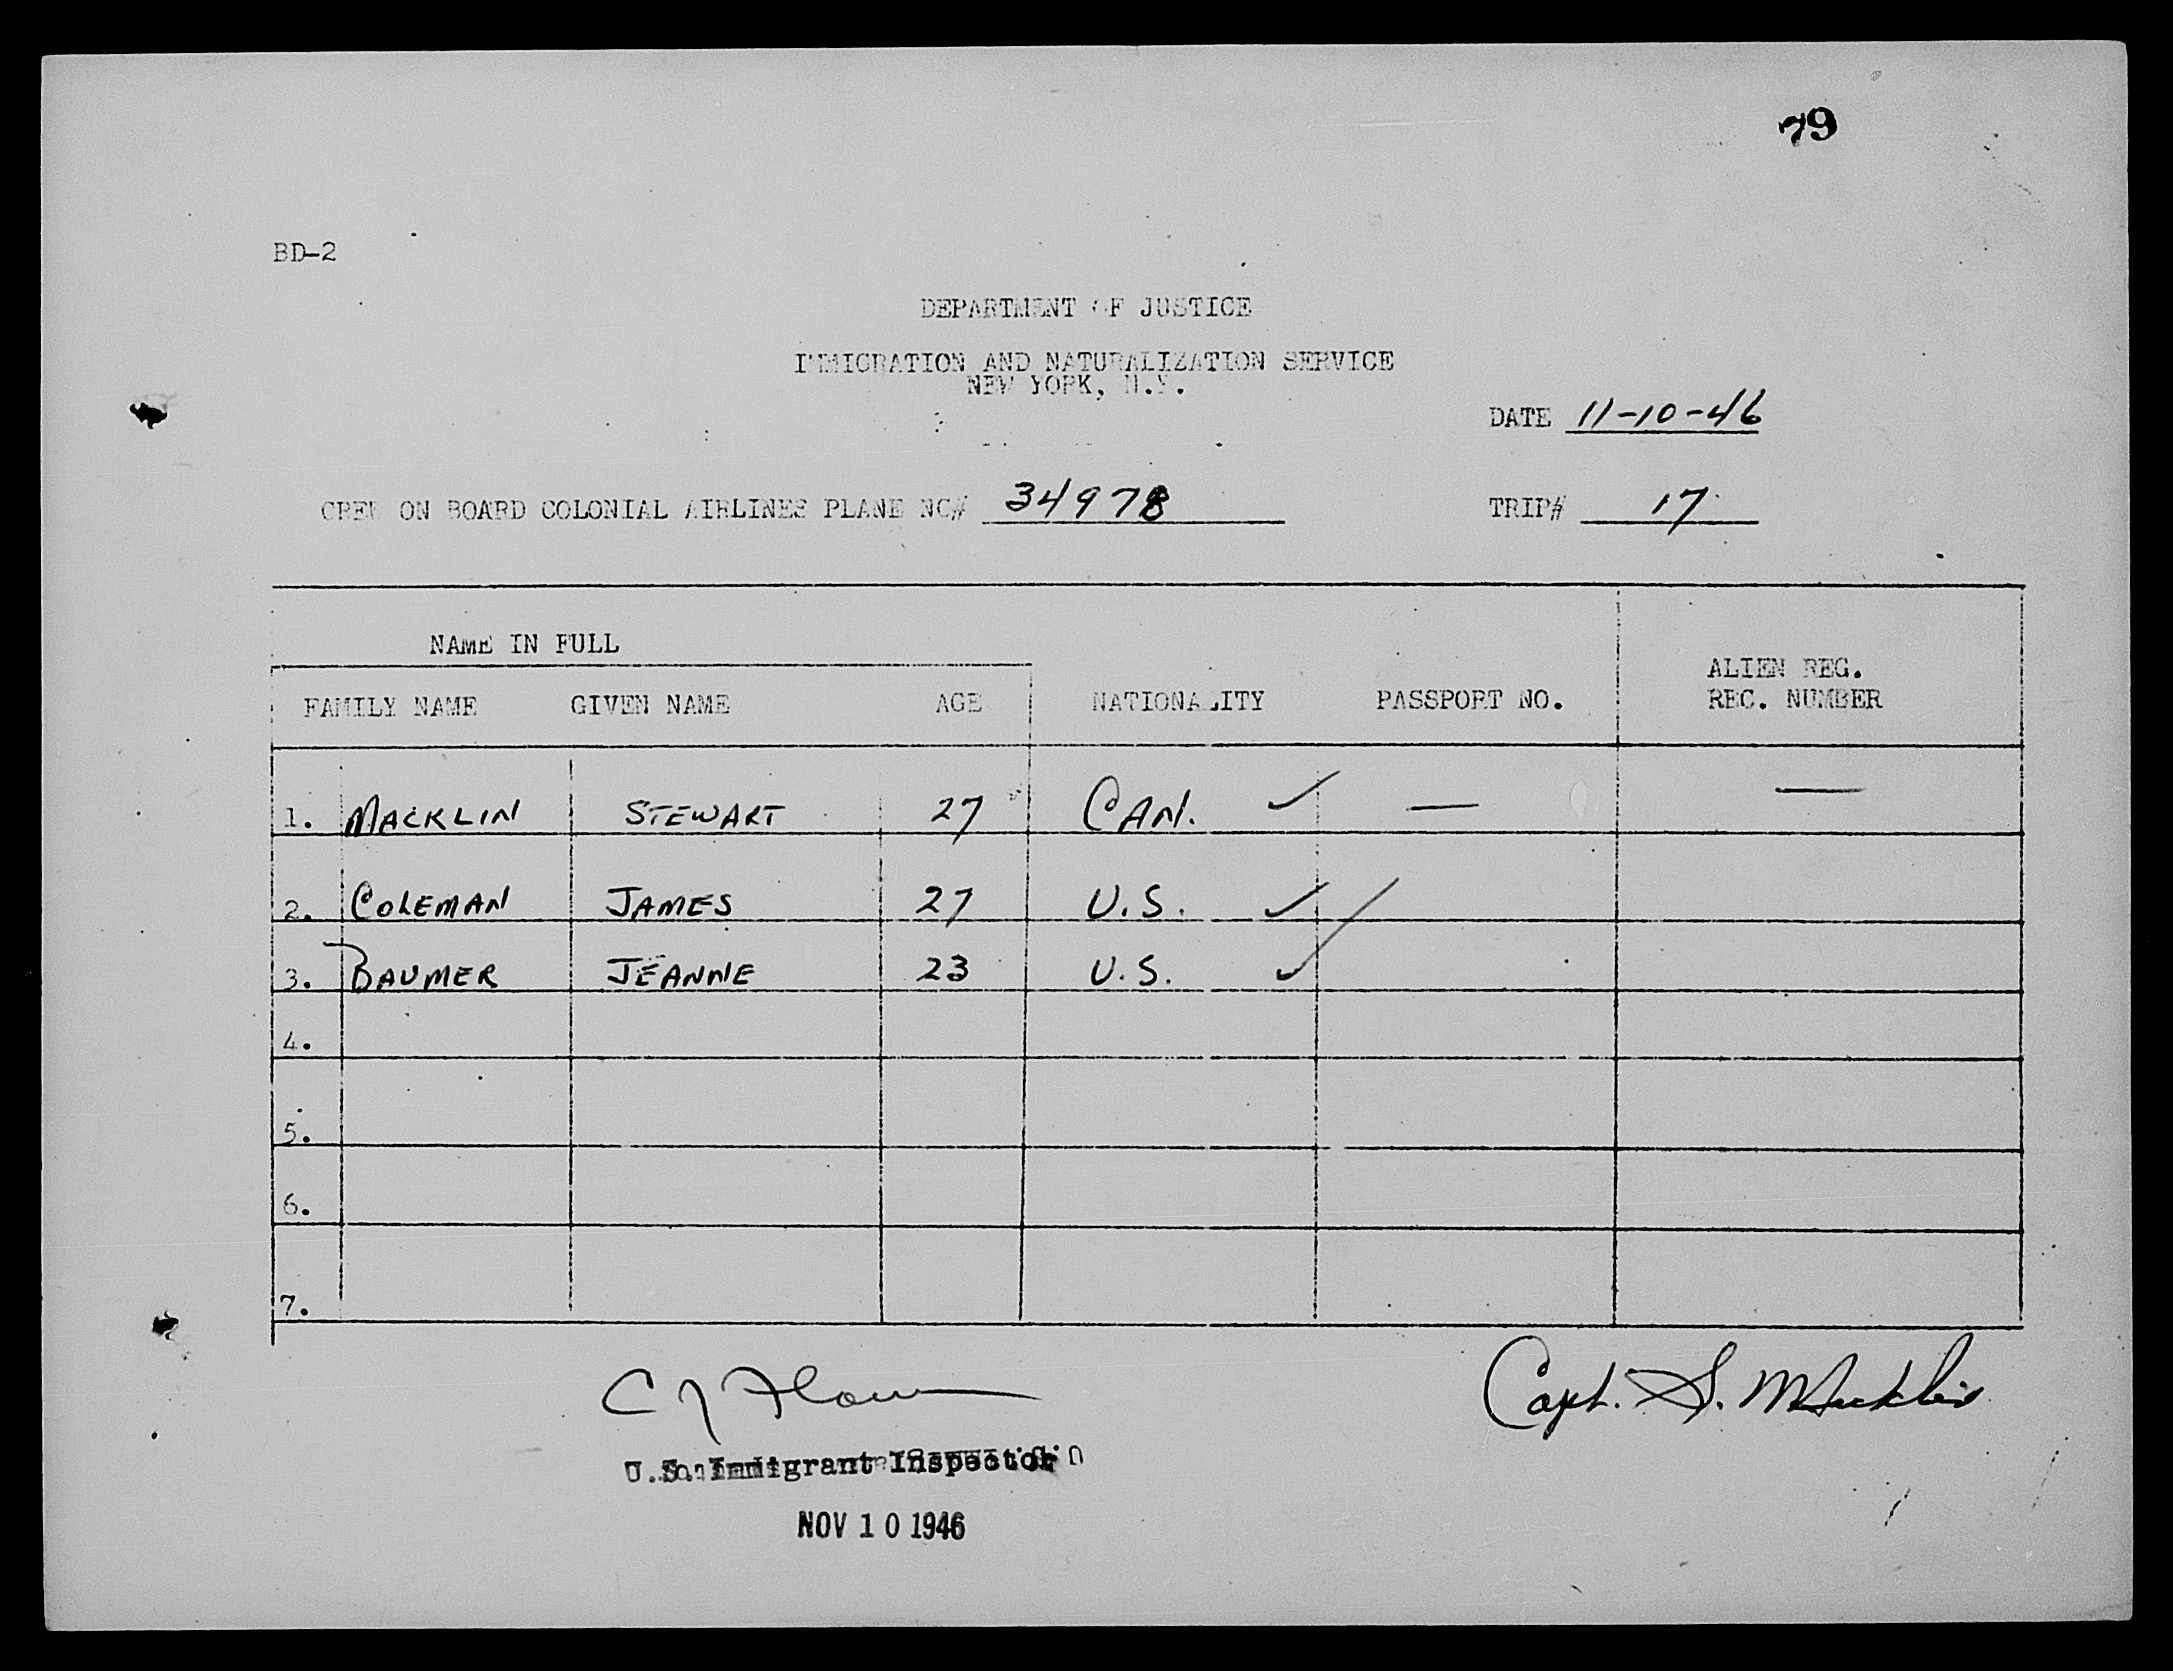 79
BD-2
DEPARTMENT OF JUSTICE
IMMIGRATION AND NATURALIZATION SERVICE
NEW YORK, N.Y.
DATE 11-10-46
CREW ON BOARD COLONIAL AIRLINES PLANE NO# 34978
TRIP# 17
NAME IN FULL
FAMILY NAME GIVEN NAME AGE NATIONALITY PASSPORT NO. ALIEN REG. REC. NUMBER
1. MACKLIN STEWART 27 CAN. ✓ — —
2. COLEMAN JAMES 27 U.S. ✓
3. BAUMER JEANNE 23 U.S. ✓
4.
5.
6.
7.
Capt. S. Macklin
U.S. Immigrant Inspector
NOV 10 1946